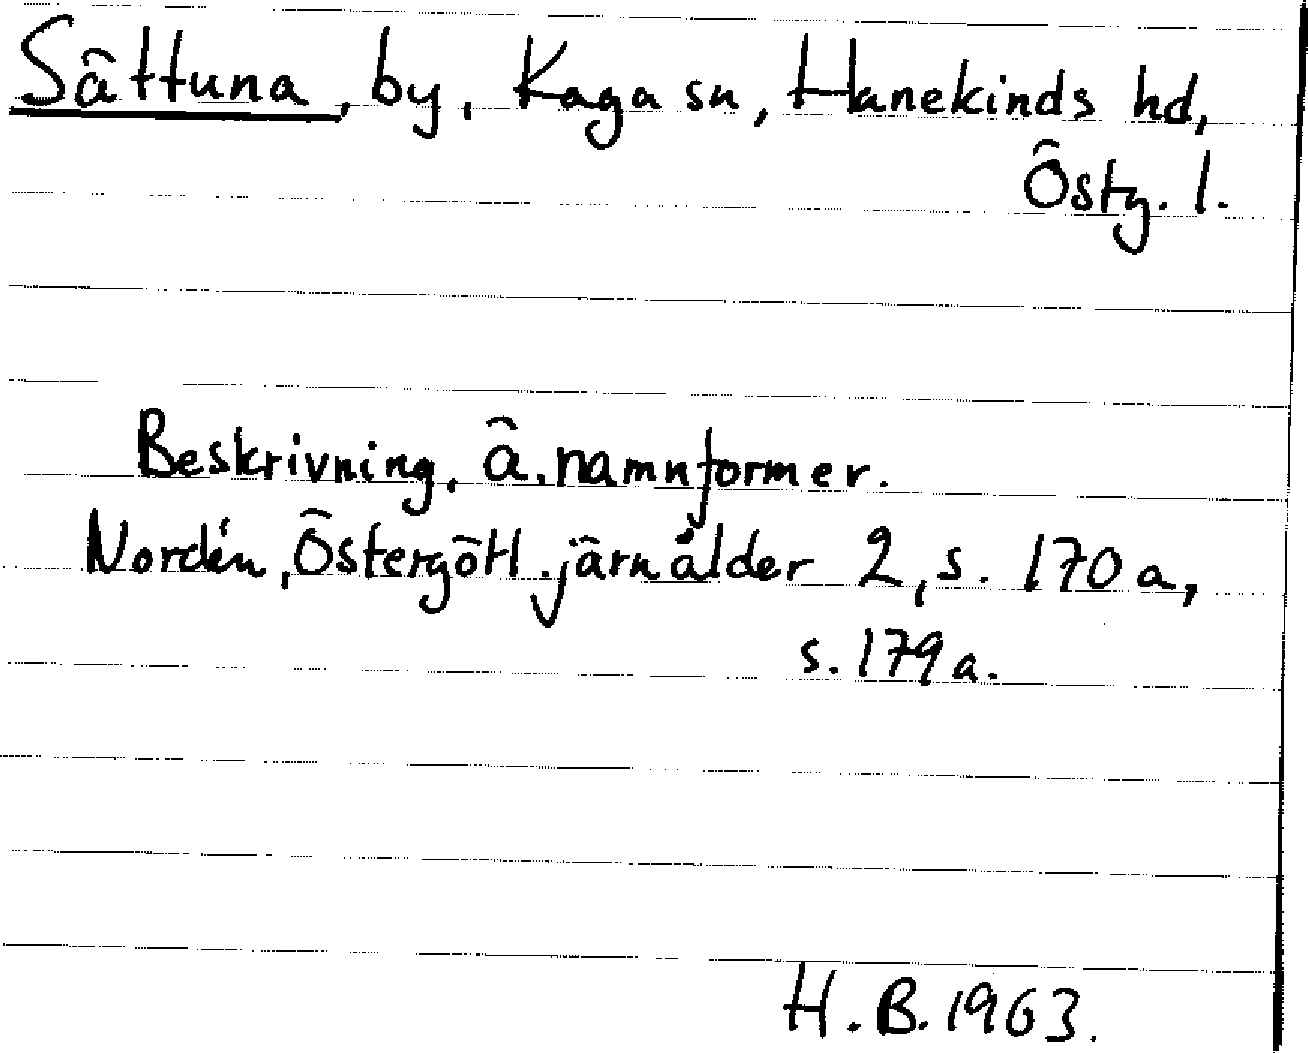 Sättuna, by, Kaga sn, Hanekinds hd,
Östg. l.
Beskrivning, ä. namnformer.
Nordén, Östergötl. järnålder 2, s. 170 a,
s. 179 a.
H. B. 1963.